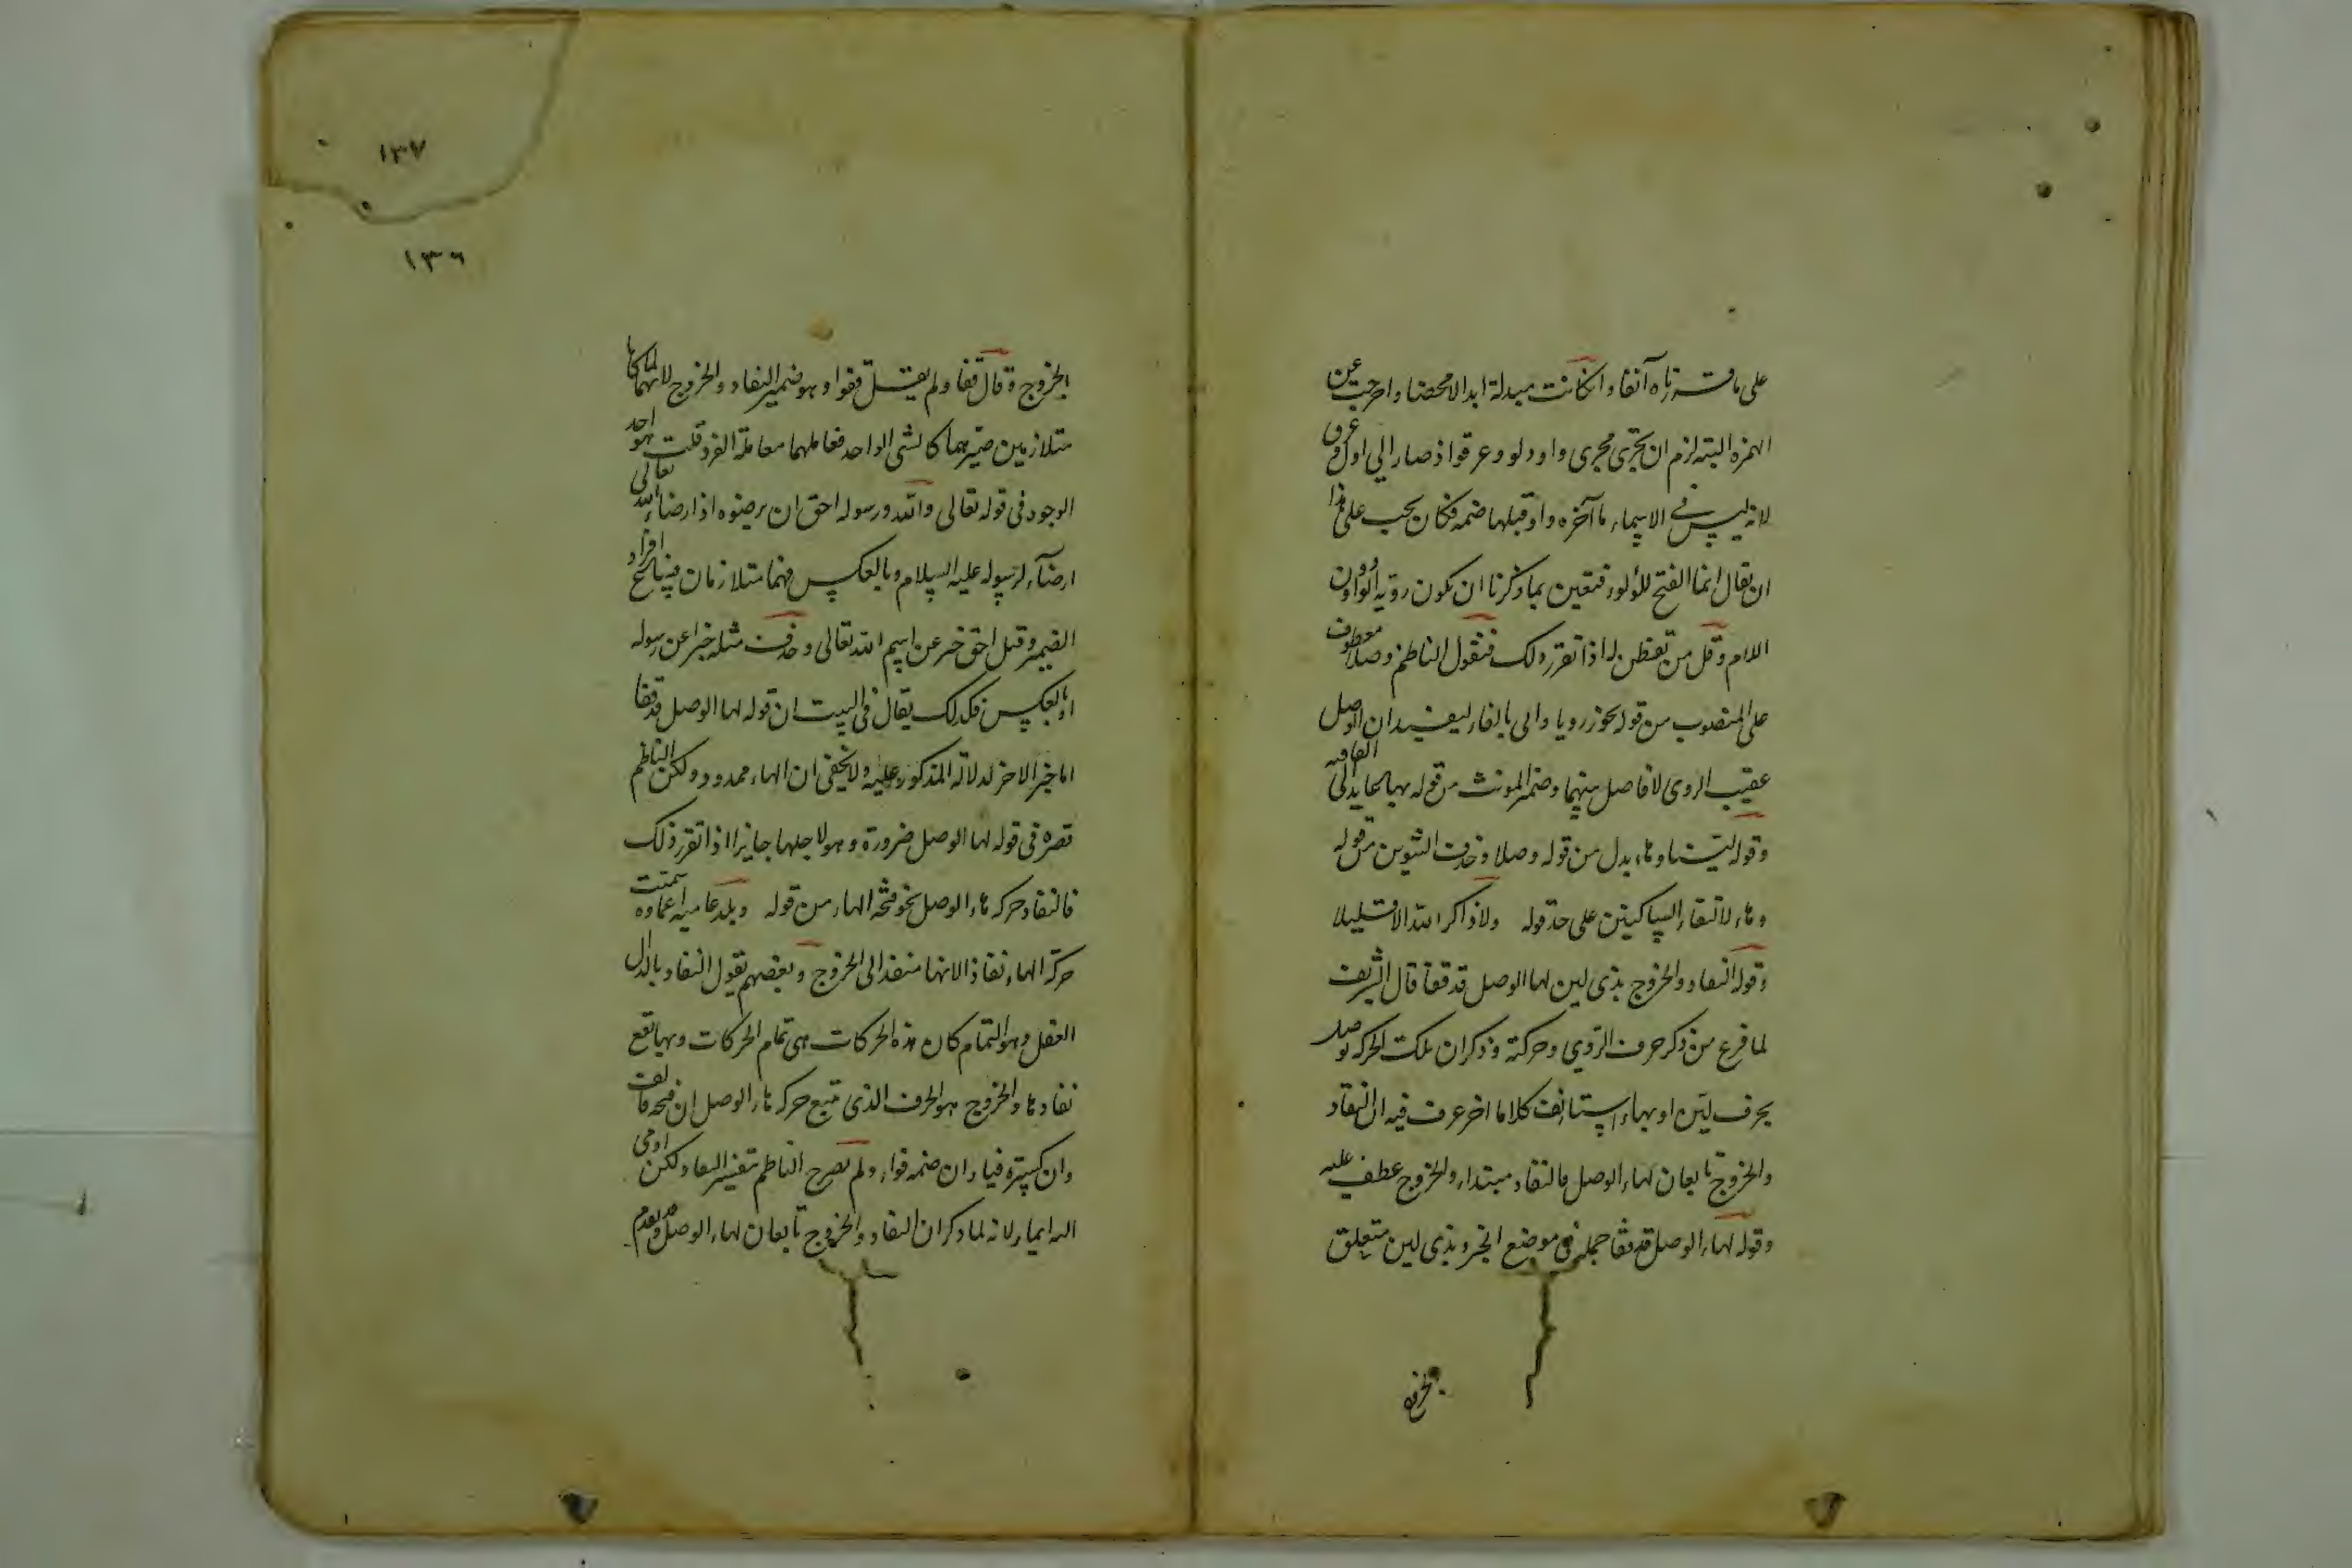 على ما قررناه آنفا وان كانت مبدلة ابدالا محضا واخرجت عن
الهمزة البتة لزم ان تجرى مجرى واو دلو وعرقوا ذصار الى ادل وعرق
لانه ليس في الاسماء ما آخره واو قبلها ضمة فكان يجب على هذا
ان يقال انما الفتح للؤلوز فتعين بما ذكرنا ان يكون رويه الواو دون
اللام وقل من تفطن له اذا تقرر ذلك فنقول الناظم وصلا معطوف
على المنصوب من قوله تحوز رويا والى بالفاء ليفيد ان الوصل
عقيب الروى لا فاصل بينهما وضمير المونث من قوله بها عايد الى القافيه
وقوله لينا وهاء بدل من قوله وصلا وحذف التنوين من قوله
وهاء لالتقاء الساكنين على حد قوله ولا ذاكر الله الا قليلا
وقوله النفاد والخروج بذى لين لها الوصل قد قفا قال الشريف
لما فرغ من ذكر حرف الروي وحركته وذكر ان تلك الحركة توصل
بحرف لين او بهاء استانف كلاما اخر عرف فيه ان النفاد
والخروج تابعان لهاء الوصل فالنفاد مبتداء والخروج عطف عليه
وقوله لهاء الوصل قد قفا جملة في موضع الخبر وبذى لين متعلق
بالخروج
١٣٧
١٣٦
بالخروج وقال قفا ولم يقل قفوا وهو ضمير النفاد والخروج لانهما لما كانا
متلازمين صيرهما كالشى الواحد فعاملهما معاملة الفرد قلت هو احد
الوجوه فى قوله تعالى والله ورسوله احق ان يرضوه اذ ارضاء الله تعالى
ارضاء لرسوله عليه السلام وبالعكس فهما متلازمان فيه باسح افراد
الضمير وقيل احق خبر عن اسم الله تعالى وحذف مثله خبرا عن رسوله
او بالعكس فكذلك يقال فى البيت ان قوله لها الوصل قد قفا
اما خبر الاخر لدلالة المذكور عليه ولا يخفى ان الهاء ممدود ولكن الناظم
قصره فى قوله لها الوصل ضرورة وهو لاجلها جايز اذا تقرر ذلك
فالنفاد حركة هاء الوصل نحو فتحة الهاء من قوله وبلد عامية اعماوه سميت
حركة الهاء نفاذا لانها منفذ الى الخروج وبعضهم يقول النفاد بالدال
الغفل وهو التمام كان هذه الحركات هى تمام الحركات وبها يقع
نفادها والخروج هو الحرف الذى تتبع حركة هاء الوصل ان فتحة فالف
وان كسرة فياء وان ضمة فواو ولم يصرح الناظم بتفسير النفاد لكن اومى
اليه ايماء لانه لما ذكر ان النفاد والخروج تابعان لهاء الوصل وتقدم